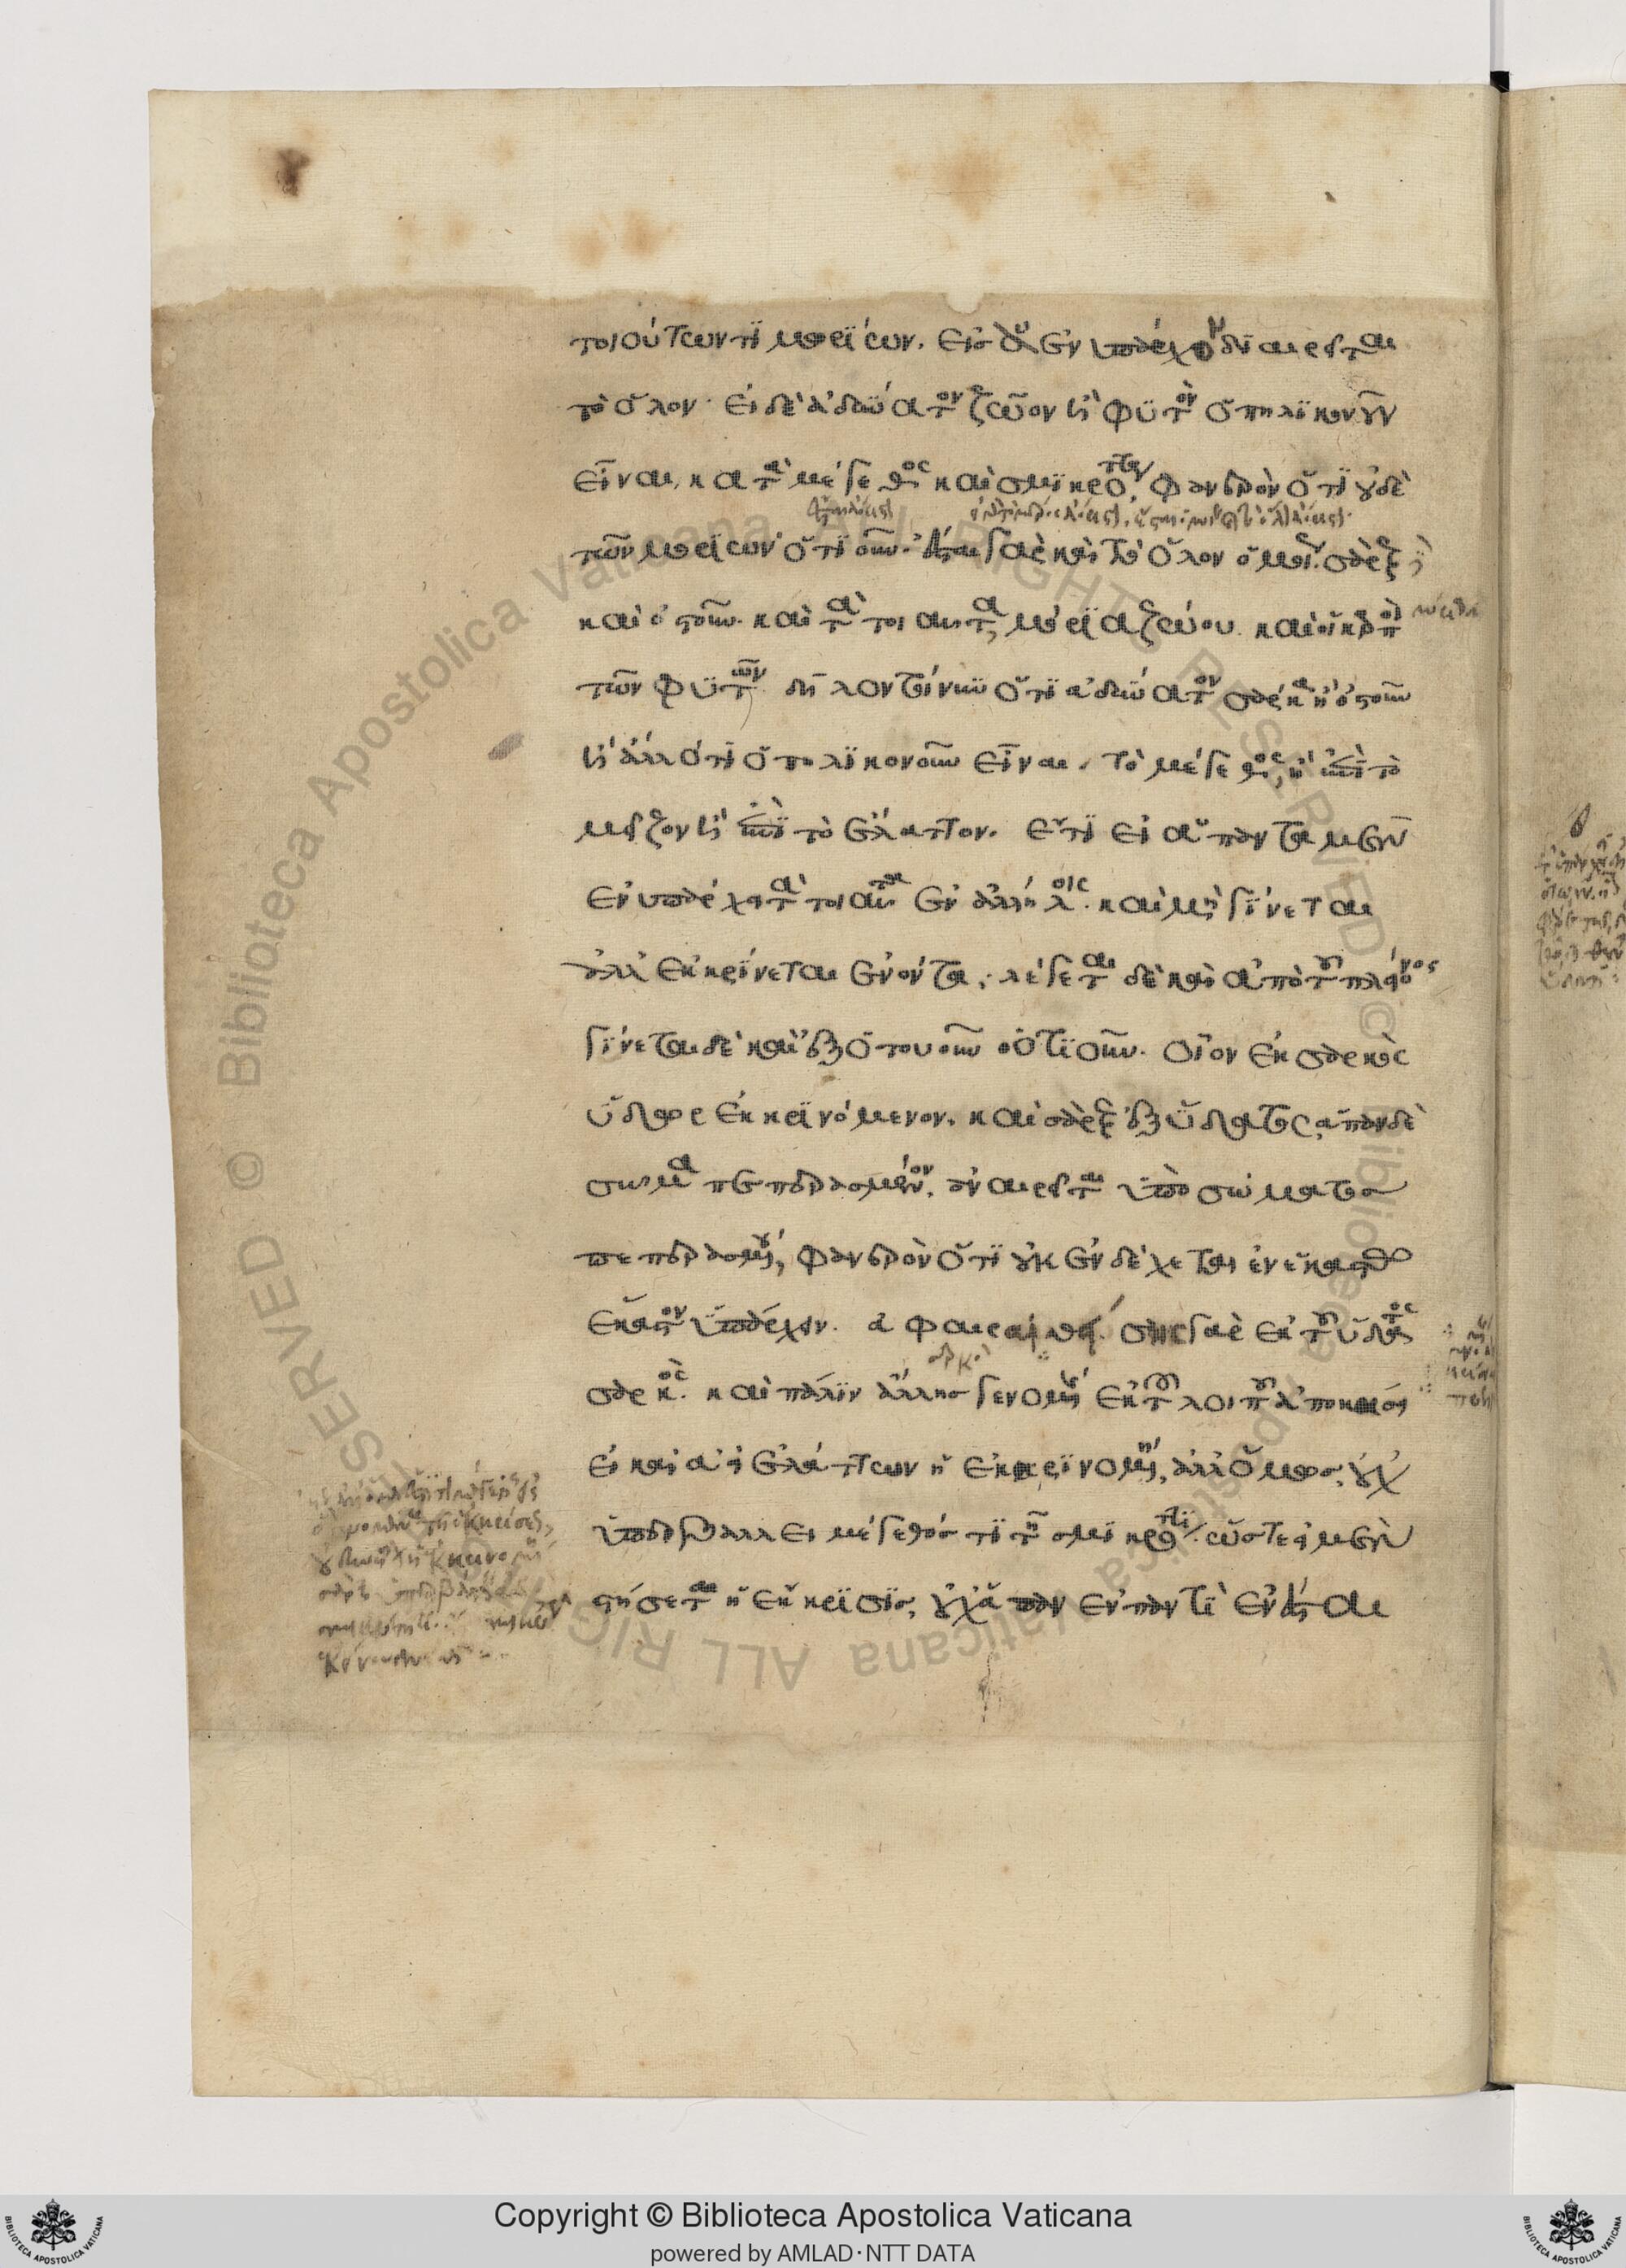 τοιούτων τι μορίων. εἰς ὃ ἐνυπάρχον διαιρεῖται
τὸ ὅλον. εἰ δὲ ἀδύνατον ζῶον ἢ φυτὸν ὁπηλικονοῦν
εἶναι, κατὰ μέγεθος καὶ σμικρότητα, φανερὸν ὅτι οὐδὲ
τῶν μορίων ὁτιοῦν. ἔσται γὰρ καὶ τὸ ὅλον ὁμοίως. σὰρξ
καὶ ὀστοῦν καὶ τὰ τοιαῦτα, μόρια ζώου. καὶ οἱ καρποὶ
τῶν φυτῶν. δῆλον τοίνυν ὅτι ἀδύνατον σάρκα ἢ ὀστοῦν
ἢ ἄλλό τι ὁπηλικονοῦν εἶναι. τὸ μέγεθος, ἢ ἐπὶ τὸ
μεῖζον ἢ ἐπὶ τὸ ἔλαττον. ἔτι εἰ ἅπαντα μὲν
ἐνυπάρχει τὰ τοιαῦτα ἐν ἀλλήλοις. καὶ μὴ γίνεται
ἀλλ' ἐκκρίνεται ἐνόντα, λέγεται δὲ καὶ ἀπὸ τοῦ πλείονος
γίνεται δὲ καὶ ἐξ ὁτουοῦν ὁτιοῦν. οἷον ἐκ σαρκὸς
ὕδωρ ἐκκρινόμενον. καὶ σὰρξ ἐξ ὕδατος, ἅπαν δὲ
σῶμα πεπερασμένον. ἀναιρεῖται ὑπὸ σώματος
πεπερασμένου, φανερὸν ὅτι οὐκ ἐνδέχεται ἐν ἑκάστῳ
ἕκαστον ὑπάρχειν. ἀφαιρεθείσης γὰρ ἐκ τοῦ ὕδατος
σαρκὸς. καὶ πάλιν ἄλλης γενομένης ἐκ τοῦ λοιποῦ ἀποκρίσει
εἰ καὶ ἀεὶ ἐλάττων ἡ ἐκκρινομένη, ἀλλ' ὅμως, οὐχ
ὑπερβάλλει μέγεθός τι τῇ σμικρότητι. ὥστε εἰ μὲν
στήσεται ἡ ἔκκρισις, οὐχ ἅπαν ἐν παντὶ ἐνέσται
Copyright © Biblioteca Apostolica Vaticana
powered by AMLAD·NTT DATA